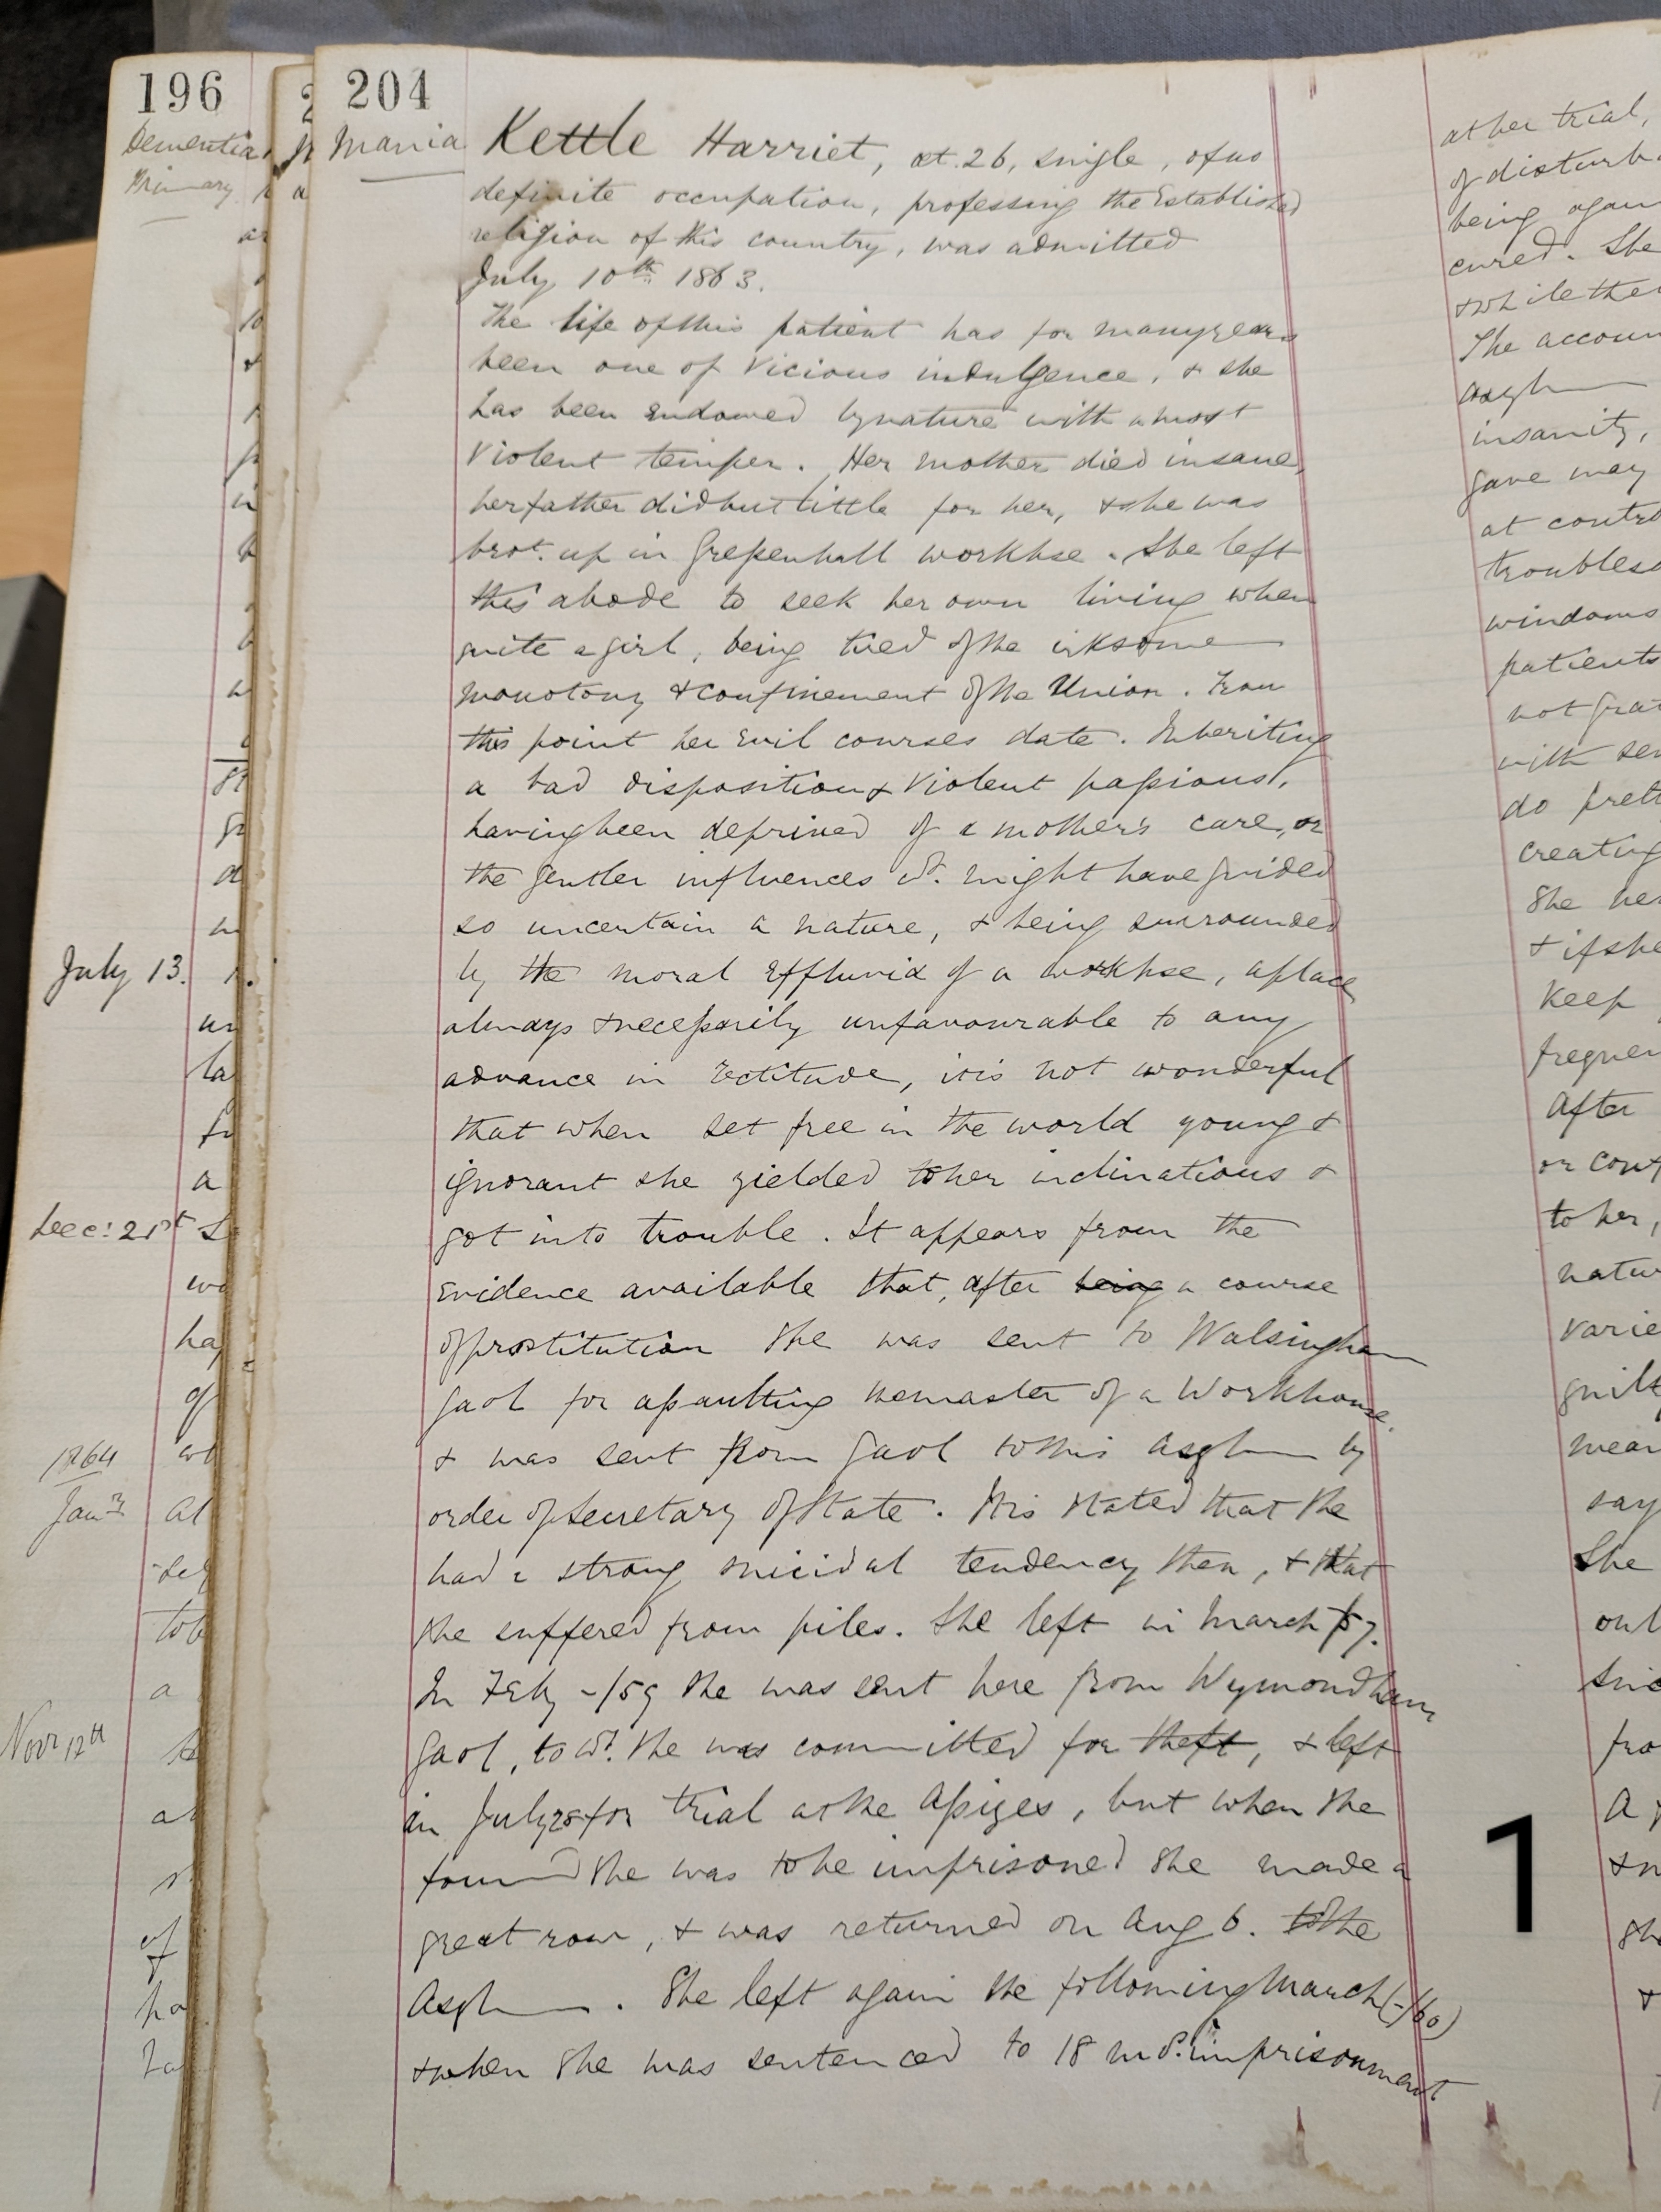 196
Dementia
Primary
July 13.
Dec: 21st
1864
Jan
Novr 12th
204
Mania
Kettle Harriet, æt. 26, single, of no
definite occupation, professing the Established
religion of this country, was admitted
July 10th 1863.
The life of this patient has for many years
been one of vicious indulgence, & she
has been endowed by nature with a most
violent temper. Her mother died insane,
her father did but little for her, & she was
brot. up in Gressenhall workhse. She left
this abode to seek her own living when
quite a girl, being tired of the irksome
monotony & confinement of the Union. From
this point her evil courses date. Inheriting
a bad disposition & violent passions,
having been deprived of a mother's care, or
the gentler influences wh. might have guided
so uncertain a nature, & being surrounded
by the moral effluvia of a workhse, a place
always & necessarily unfavourable to any
advance in rectitude, it is not wonderful
that when set free in the world young &
ignorant she yielded to her inclinations &
got into trouble. It appears from the
evidence available that, after being a course
of prostitution she was sent to Walsingham
gaol for assaulting the master of a Workhouse,
& was sent from gaol to this Asylum by
order of Secretary of State. It is stated that she
had a strong suicidal tendency then, & that
she suffered from piles. She left in March /57.
In Feby -/59 she was sent here from Wymondham
gaol, to wh. she was committed for theft, & left
in July 28 for trial at the Assizes, but when she
found she was to be imprisoned she made a
great row, & was returned on Aug 6. to the
Asylum. She left again the following March (-/60)
& when she was sentenced to 18 ms. imprisonment
at her trial,
of disturb
being again
cured. She
& while ther
The accoun
asylum
insanity,
gave way
at contro
troubleso
windows
patients
not grat
with sen
do prett
creating
She
& if she
Keep
frequen
After
or cont
to her,
natur
varie
guilt
mean
say
She
out
fro
A
1